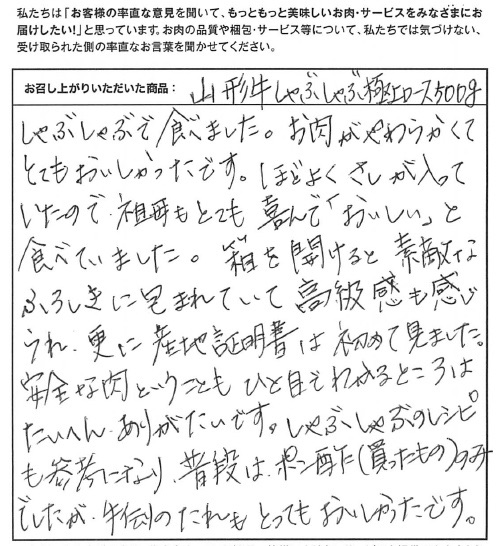 私たちは「お客様の率直な意見を聞いて、もっともっと美味しいお肉・サービスをみなさまにお
届けしたい!」と思っています。お肉の品質や梱包・サービス等について、私たちでは気づけない、
受け取られた側の率直なお言葉を聞かせてください。
お召し上がりいただいた商品: 山形牛しゃぶしゃぶ極上ロース500g
しゃぶしゃぶで食べました。お肉がやわらかくて
とてもおいしかったです。ほどよくさしが入って
いたので、祖母もとても喜んで「おいしい」と
食べていました。箱を開けると素敵な
ふろしきに包まれていて高級感も感じ
られ、更に産地証明書は初めて見ました。
安全な肉ということもひと目でわかるところは
たいへんありがたいです。しゃぶしゃぶのレシピ
も参考になり、普段は、ポン酢(買ったもの)のみ
でしたが、牛伝のたれもとってもおいしかったです。